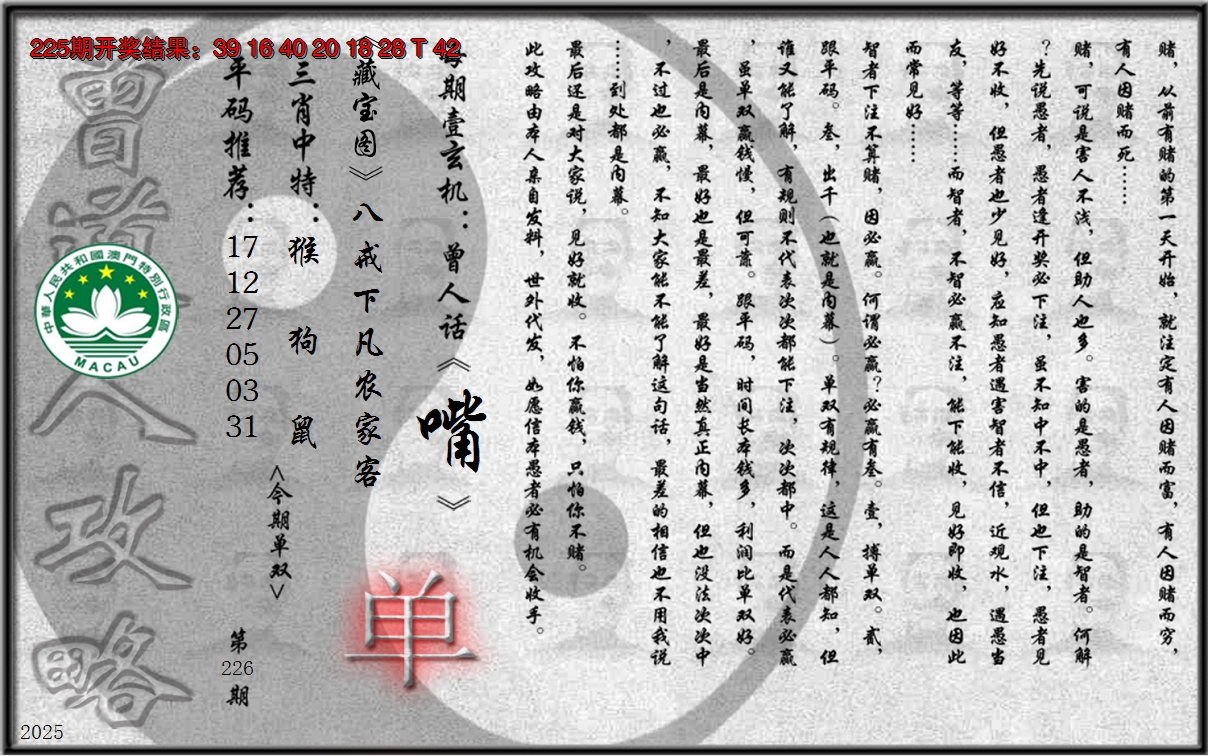 225期开奖结果：39 16 40 20 18 28 T 42
赌，从前有赌的第一天开始，就注定有人因赌而富，有人因赌而穷，
有人因赌而死……
赌，可说是害人不浅，但助人也多。害的是愚者，助的是智者。何解
？先说愚者，愚者逢开奖必下注，虽不知中不中，但也下注，愚者见
好不收，但愚者也少见好，应知愚者遇害智者不信，近观水，遇愚当
友，等等……而智者，不智必赢不注，能下能收，见好即收，也因此
而常见好……
智者下注不算赌，因必赢。何谓必赢？必赢有叁。壹，搏单双。贰，
跟平码。叁，出千（也就是内幕）。单双有规律，这是人人都知，但
谁又能了解，有规则不代表次次都能下注，次次都中。而是代表必赢
，虽单双赢钱慢，但可靠。跟平码，时间长本钱多，利润比单双好。
最后是内幕，最好也是最差，最好是当然真正内幕，但也没法次次中
，不过也必赢，不知大家能不能了解这句话，最差的相信也不用我说
……到处都是内幕。
最后还是对大家说，见好就收。不怕你赢钱，只怕你不赌。
此攻略由本人亲自发料，世外代发，如愿信本愚者必有机会收手。
每期壹玄机：曾人话《嘴》
《藏宝图》八戒下凡农家客
三肖中特：猴 狗 鼠
<今期单双>
单
平码推荐：17 12 27 05 03 31
第226期
曾道人攻略
中華人民共和國澳門特別行政區
MACAU
2025